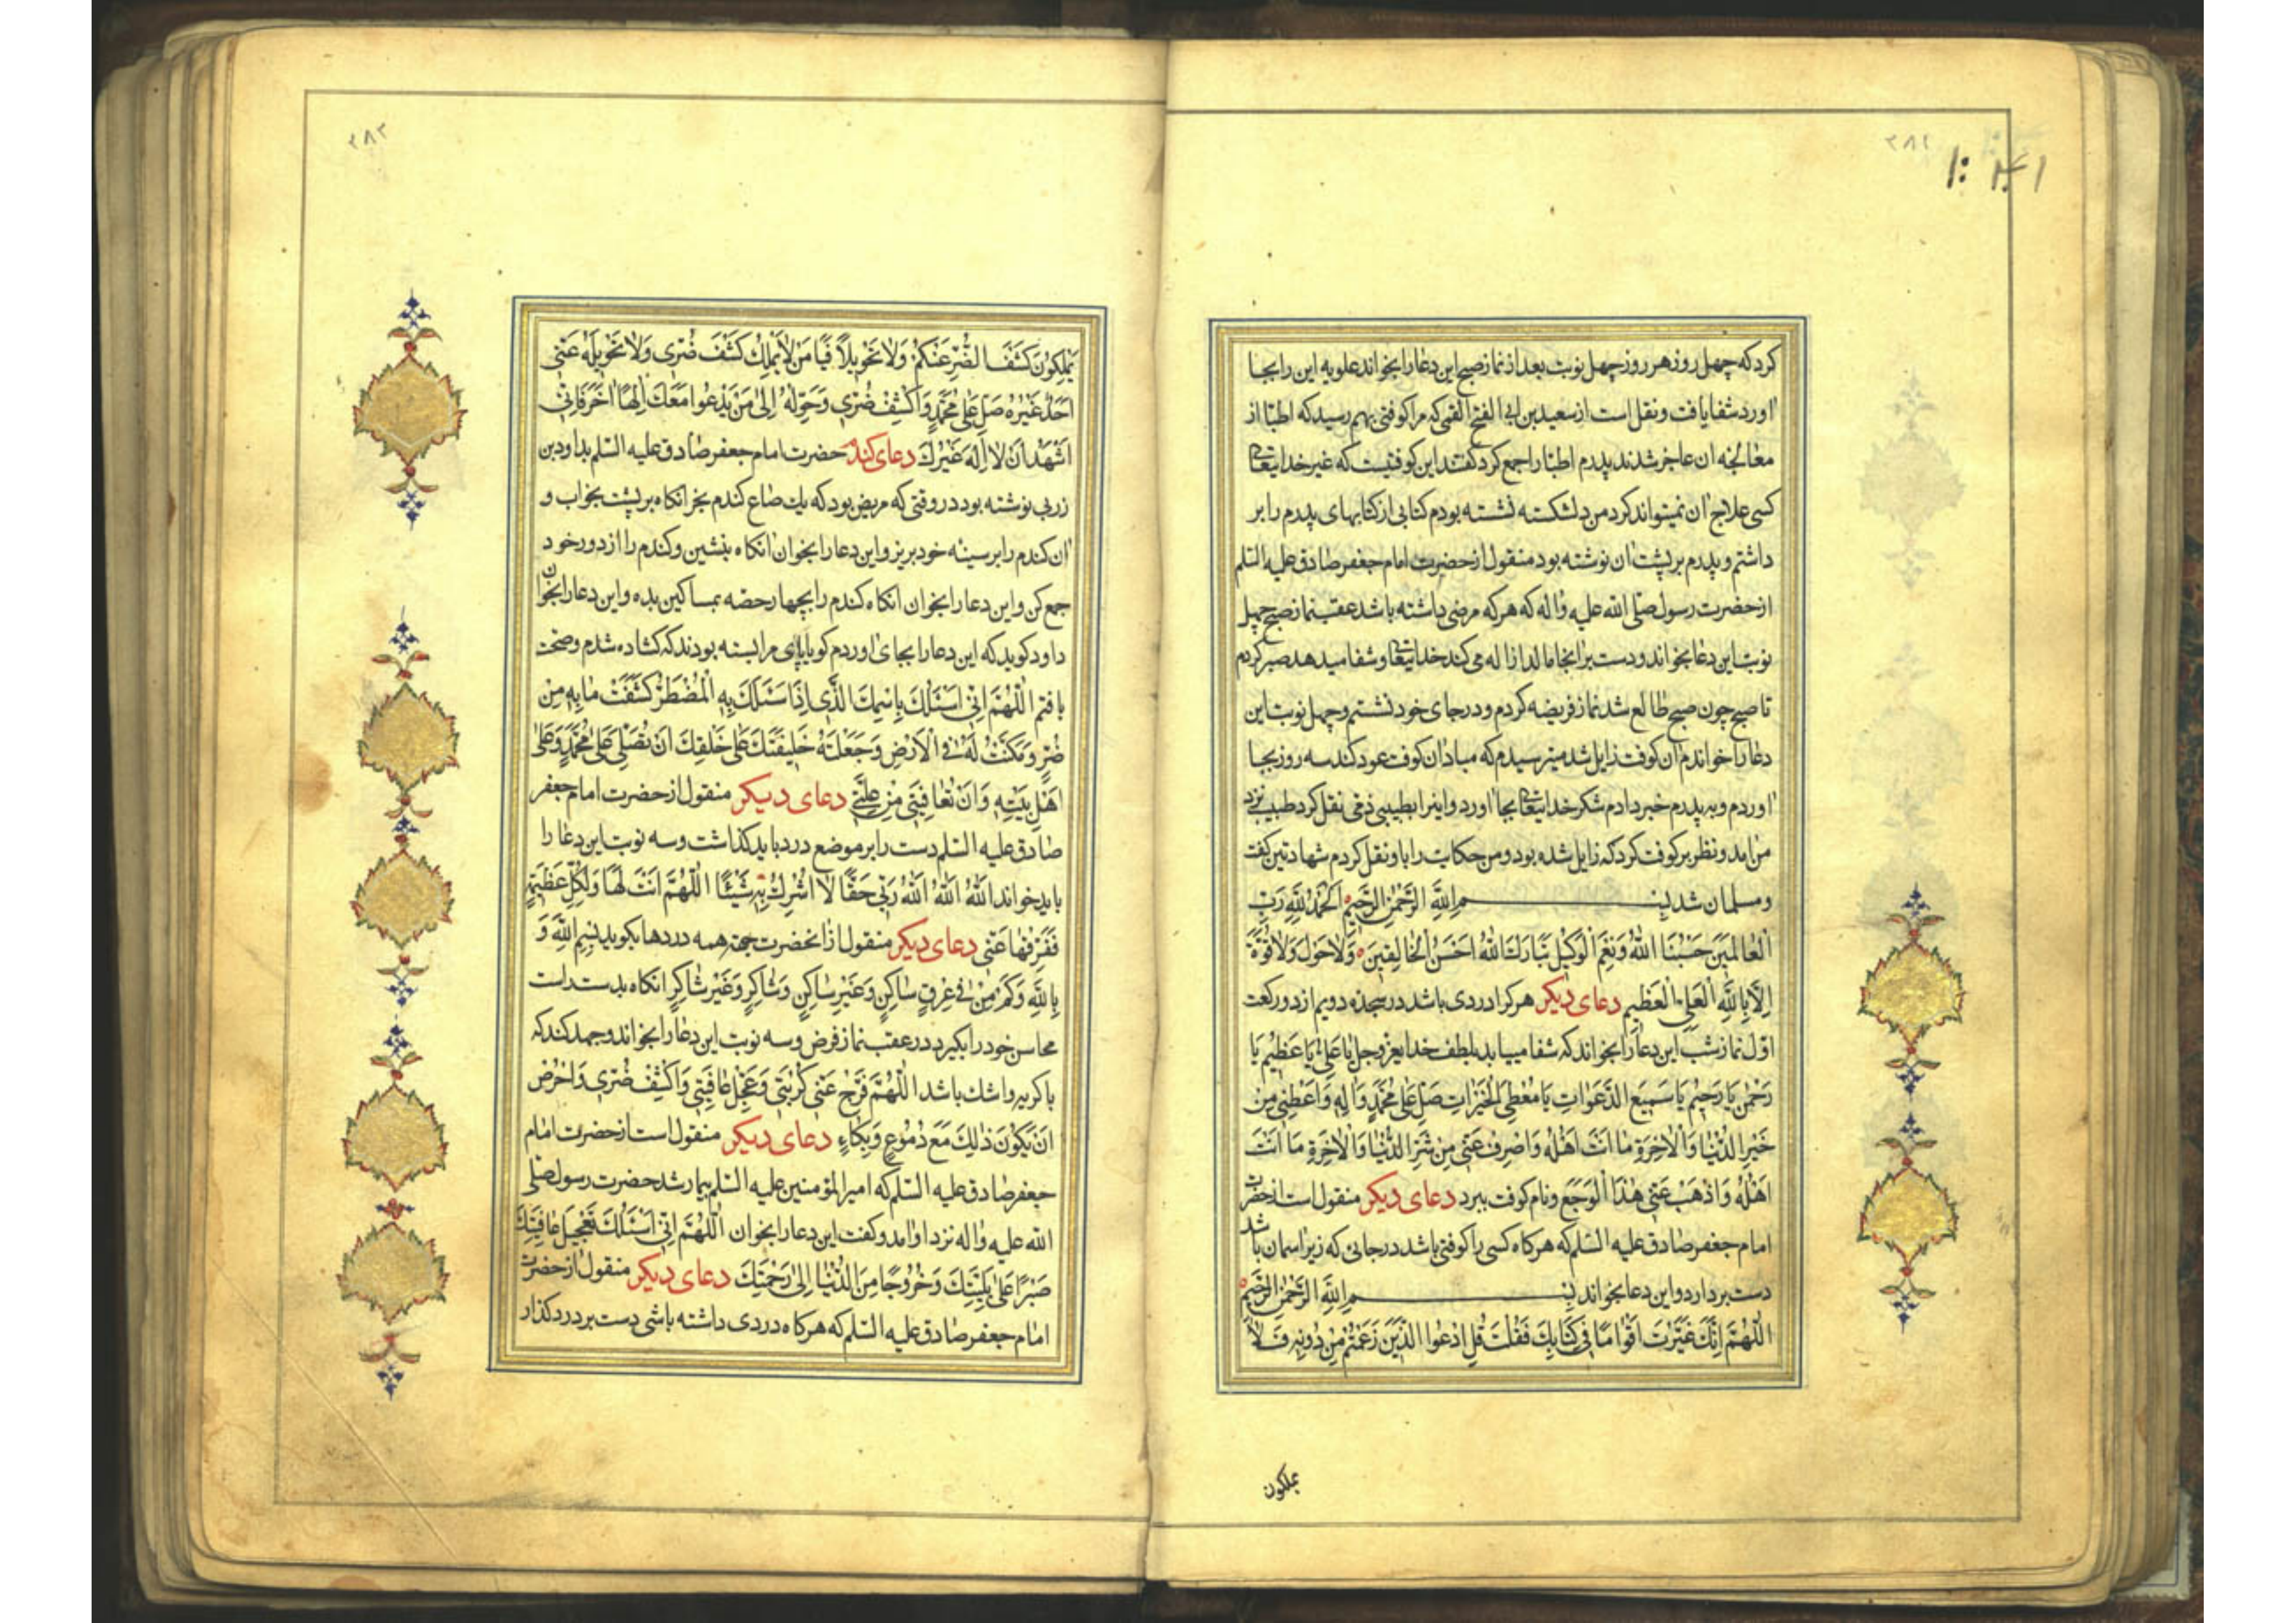 ۲۸۱
کرد که چهل روز هر روز چهل نوبت بعد از نماز صبح این دعا را بخواند علویه این را بجا
آورد شفا یافت و نقل است از سعید بن ابی الفتح القمی که مرا کوفتی بهم رسید که اطبّا از
معالجه آن عاجز شدند پدرم اطبّا را جمع کرد گفتند این کوفتیست که غیر خدایتعالی
کسی علاج آن نمیتواند کرد من دلشکسته نشسته بودم کتابی از کتابهای پدرم را بر
داشتم و پدرم بر پشت آن نوشته بود منقول از حضرت امام جعفر صادق علیه السّلم
از حضرت رسول صلّی الله علیه واله که هر که مرضی داشته باشد عقب نماز صبح چهل
نوبت این دعا بخواند و دست بر انجا مالد ازاله می کند خدایتعالی و شفا میدهد صبر کردم
تا صبح چون صبح طالع شد نماز فریضه کردم و در جای خود نشستم و چهل نوبت این
دعا را خواندم آن کوفت زایل شد میترسیدم که مبادا آن کوفت عود کند سه روز بجا
آوردم و به پدرم خبر دادم شکر خدایتعالی بجا آورد و اینرا بطبیبی ذمّی نقل کرد طبیب نزد
من آمد و نظر بر کوفت کرد که زایل شده بود و من حکایت را باو نقل کردم شهادتین گفت
و مسلمان شد بِسْمِ اللَّهِ الرَّحْمٰنِ الرَّحِيمِ اَلْحَمْدُ لِلَّهِ رَبِّ
الْعالَمِينَ حَسْبُنَا اللَّهُ وَنِعْمَ الْوَكِيلُ تَبارَكَ اللَّهُ اَحْسَنُ الْخالِقِينَ وَلاحَوْلَ وَلاقُوَّةَ
اِلّا بِاللَّهِ الْعَلِيِّ الْعَظِيمِ دعای دیگر هر کرا دردی باشد در سجده دویم از دو رکعت
اوّل نماز شب این دعا را بخواند که شفا مییابد بلطف خدای عزّوجل یا عَلِيُّ یا عَظِيمُ یا
رَحْمٰنُ یا رَحِيمُ یا سَمِيعَ الدَّعَواتِ یا مُعْطِيَ الْخَيْراتِ صَلِّ عَلىٰ مُحَمَّدٍ وَآلِهِ وَاَعْطِنِي مِنْ
خَيْرِ الدُّنْيا وَالْاٰخِرَةِ ما اَنْتَ اَهْلُهُ وَاصْرِفْ عَنِّي مِنْ شَرِّ الدُّنْيا وَالْاٰخِرَةِ ما اَنْتَ
اَهْلُهُ وَاذْهَبْ عَنِّي هٰذَا الْوَجَعَ و نام کوفت ببرد دعای دیگر منقول است از حضرت
امام جعفر صادق علیه السّلم که هر کاه کسی را کوفتی باشد در جائی که زیر اسمان باشد
دست بردارد و این دعا بخواند بِسْمِ اللَّهِ الرَّحْمٰنِ الرَّحِيمِ
اَللّٰهُمَّ اِنَّكَ عَيَّرْتَ اَقْوامًا فِي كِتابِكَ فَقُلْتَ قُلِ ادْعُوا الَّذِينَ زَعَمْتُمْ مِنْ دُونِهِ فَلا
یملکون
۲۸۲
يَمْلِكُونَ كَشْفَ الضُّرِّ عَنْكُمْ وَلا تَحْوِيلاً فَيا مَنْ لايَمْلِكُ كَشْفَ ضُرِّي وَلا تَحْوِيلَهُ عَنِّي
اَحَدٌ غَيْرُهُ صَلِّ عَلىٰ مُحَمَّدٍ وَاكْشِفْ ضُرِّي وَحَوِّلْهُ اِلىٰ مَنْ يَدْعُوا مَعَكَ اِلٰهًا اٰخَرَ فَاِنِّي
اَشْهَدُ اَنْ لا اِلٰهَ غَيْرُكَ دعای کندم حضرت امام جعفر صادق علیه السّلم بداود بن
زربی نوشته بود در وقتی که مریض بود که یك صاع کندم بخر انکاه بر پشت بخواب و
آن کندم را بر سینه خود بریز و این دعا را بخوان انکاه بنشین و کندم را از دور خود
جمع کن و این دعا را بخوان انکاه کندم را بچهار حصّه بمساکین بده و این دعا را بخوان
داود کوید که این دعا را بجای آوردم کویا پای مرا بسته بودند که کشاده شدم و صحّت
یافتم اَللّٰهُمَّ اِنِّي اَسْئَلُكَ بِاسْمِكَ الَّذِي اِذا سَئَلَكَ بِهِ الْمُضْطَرُّ كَشَفْتَ ما بِهِ مِنْ
ضُرٍّ وَمَكَّنْتَ لَهُ فِي الْاَرْضِ وَجَعَلْتَهُ خَلِيفَتَكَ عَلىٰ خَلْقِكَ اَنْ تُصَلِّيَ عَلىٰ مُحَمَّدٍ وَعَلىٰ
اَهْلِ بَيْتِهِ وَاَنْ تُعافِيَنِي مِنْ عِلَّتِي دعای دیگر منقول از حضرت امام جعفر
صادق علیه السّلم دست را بر موضع درد باید کذاشت و سه نوبت این دعا را
باید خواند اَللَّهُ اَللَّهُ اَللَّهُ رَبِّي حَقًّا لا اُشْرِكُ بِهِ شَيْئًا اَللّٰهُمَّ اَنْتَ لَها وَلِكُلِّ عَظِيمَةٍ
فَفَرِّجْها عَنِّي دعای دیگر منقول از آنحضرت جهة همه دردها بکوید بِسْمِ اللَّهِ وَ
بِاللَّهِ وَكَمْ مِنْ فِي عِرْقٍ ساكِنٍ وَغَيْرِ ساكِنٍ وَشاكِرٍ وَغَيْرِ شاكِرٍ انکاه بدست راست
محاسن خود را بگیرد در عقب نماز فرض و سه نوبت این دعا را بخواند و جهد کند که
با کریه و اشك باشد اَللّٰهُمَّ فَرِّجْ عَنِّي كُرْبَتِي وَعَجِّلْ عافِيَتِي وَاكْشِفْ ضُرِّي وَاحْرُصْ
اَنْ يَكُونَ ذٰلِكَ مَعَ دُمُوعٍ وَبُكاءٍ دعای دیگر منقول است از حضرت امام
جعفر صادق علیه السّلم که امیر المؤمنین علیه السّلم بیمار شد حضرت رسول صلّی
الله علیه واله نزد او امد و کفت این دعا را بخوان اَللّٰهُمَّ اِنِّي اَسْئَلُكَ تَعْجِيلَ عافِيَتِكَ
صَبْرًا عَلىٰ بَلِيَّتِكَ وَخُرُوجًا مِنَ الدُّنْيا اِلىٰ رَحْمَتِكَ دعای دیگر منقول از حضرت
امام جعفر صادق علیه السّلم که هر کاه دردی داشته باشی دست بر درد کذار